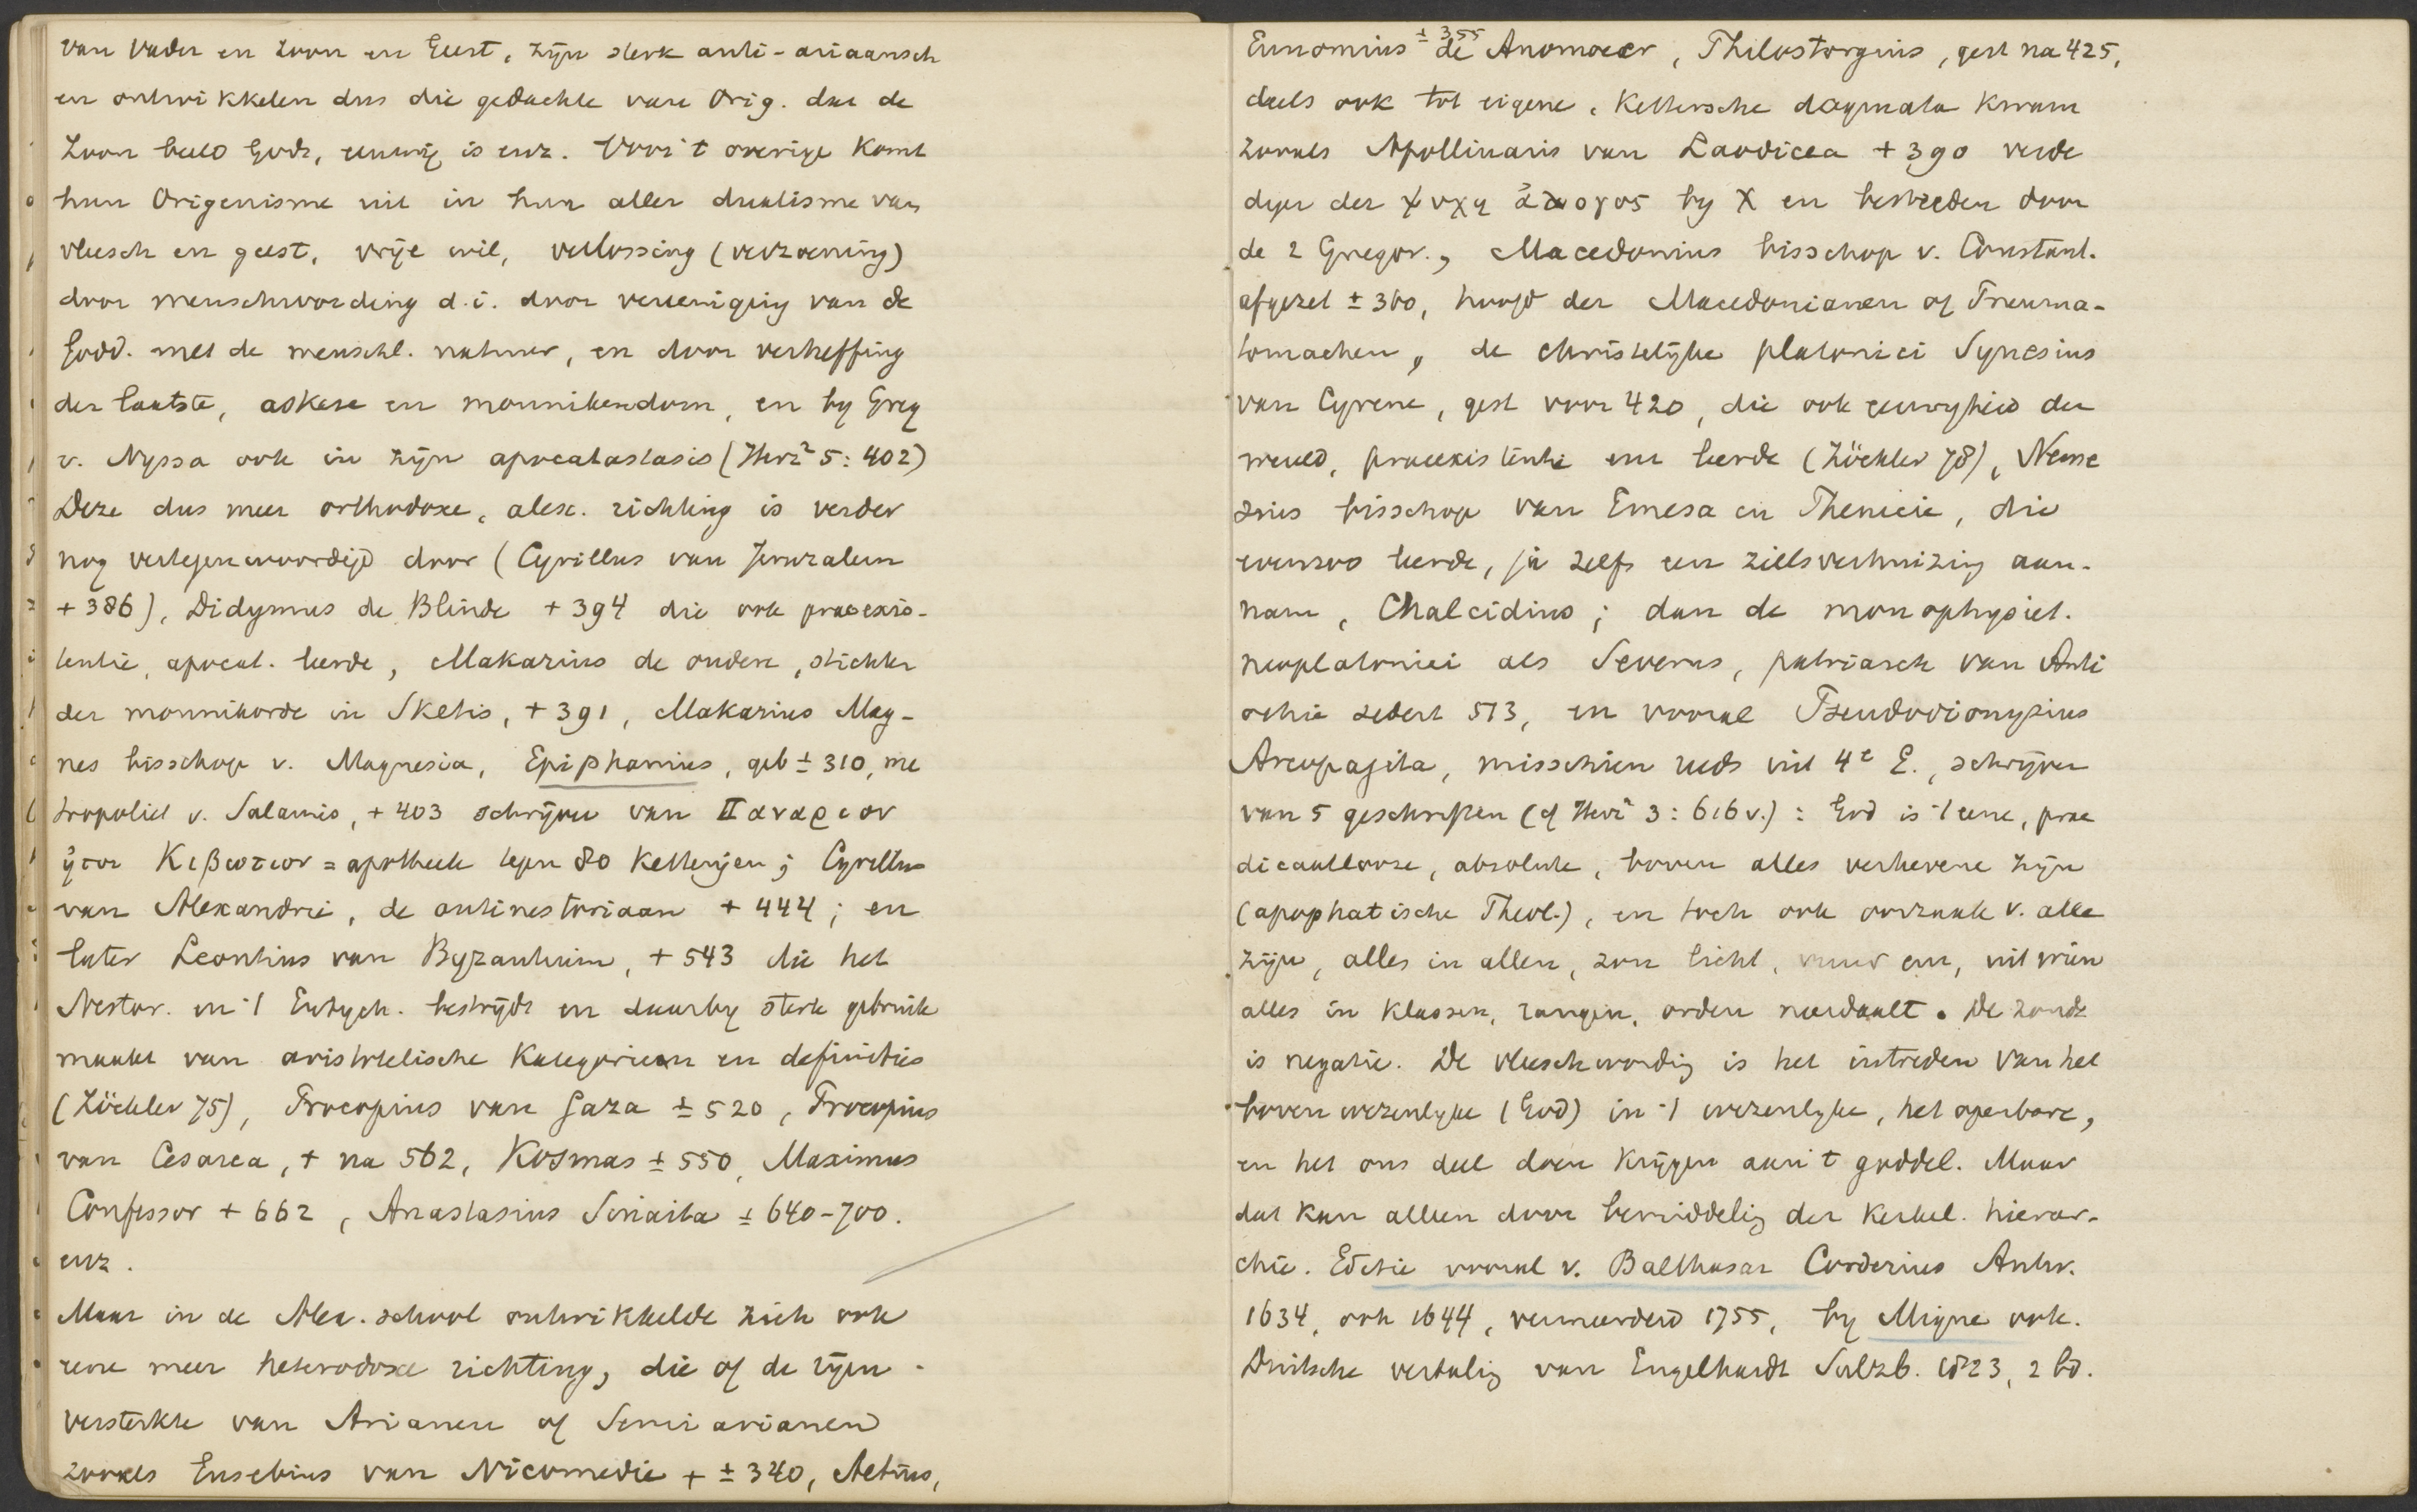 van Vader en Zoon en Geest, zijn sterk anti-ariaansch
en ontwikkelen dus die gedachte van Orig. dat de
Zoon beeld Gods, eeuwig is enz. Voor 't overige komt
hun Origenisme uit in hun aller dualisme van
vleesch en geest, vrije wil, verlossing (verzoening)
door menschwording d.i. door vereeniging van de
Godd. met de menschl. natuur, en door verheffing
der laatste, askese en monnikendom, en by Greg
v. Nyssa ook in zijn apocatastasis (Herz² 5:402)
Deze dus meer orthodoxe, alex. richting is verder
nog vertegenwoordigd door (Cyrillus van Jeruzalem
+386), Didymus de Blinde +394 die ook praeexis-
tentie, apocat. leerde, Makarius de oudere, stichter
der monnikorde in Sketis, +391, Makarius Mag-
nes bisschop v. Magnesia, Epiphanius, geb ± 310, me
tropoliet v. Salamis, +403 schrijver van Παναριον
ητοι Κιβωτιον = apotheek tegen 80 ketterijen; Cyrillus
van Alexandrie, de antinestoriaan +444; en
later Leontius van Byzantium, +543 die het
Nestor. en 't Eutych. bestrijdt en daarby sterk gebruik
maakt van aristotelische kategorieen en definities
(Zöckler 75), Procopius van Gaza ± 520, Procopius
van Cesarea, + na 562, Kosmas ± 550, Maximus
Confessor +662, Anastasius Sinaita ± 640-700.
enz.
Maar in de Alex. school ontwikkelde zich ook
eene meer heterodoxe richting, die of de rijen
versterkte van Arianen of Semiarianen
zooals Eusebius van Nicomedie + ± 340, Aetius,
Eunomius ± 355 de Anomoeer, Philostorgius, gest na 425,
deels ook tot eigene, kettersche dogmata kwam
zooals Apollinaris van Laodicea +390 verde
diger der ψυχη ἀλογος by X en bestreden door
de 2 Gregor., Macedonius bisschop v. Constant.
afgezet ± 360, hoofd der Macedonianen of Pneuma-
tomachen, de christelijke platonici Synesius
van Cyrene, gest voor 420, die ook eeuwigheid der
wereld, praeexistentie enz leerde (Zöckler 78), Neme
sius bisschop van Emesa in Phenicie, die
evenzoo leerde, ja zelfs een zielsverhuizing aan-
nam, Chalcidius; dan de monophysiet.
neoplatonici als Severus, patriarch van Anti
ochie sedert 513, en vooral Pseudodionysius
Areopagita, misschien reeds uit 4e E., schrijver
van 5 geschriften (cf Herz² 3:616 v.): God is 't eene, prae
dicaatlooze, absolute, boven alles verhevene zijn
(apophatische Theol.), en toch ook oorzaak v. alle
zijn, alles in allen, zon licht, vuur enz, uit wien
alles in klassen, rangen, orden neerdaalt. De zonde
is negatie. De vleeschwording is het intreden van het
bovenwezenlyke (God) in 't wezenlyke, het openbare,
en het ons deel doen krijgen aan 't goddel. Maar
dat kan alleen door bemiddelig der kerkel. hierar-
chie. Editie vooral v. Balthasar Corderius Antw.
1634, ook 1644, vermeerderd 1755, by Migne ook.
Duitsche vertalig van Engelhardt Sulzb. 1823, 2 bd.